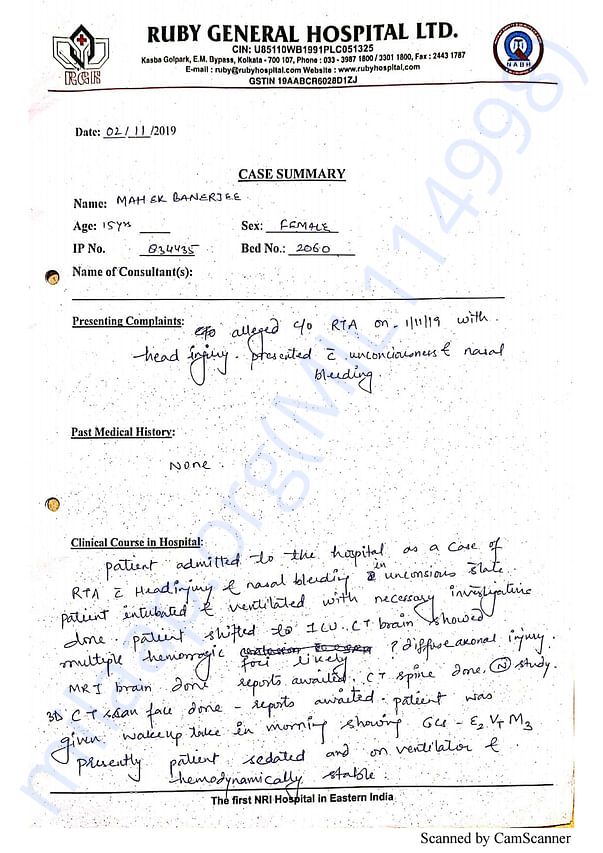 RUBY GENERAL HOSPITAL LTD.
CIN: U85110WB1991PLC051325
Kasba Golpark, E.M. Bypass, Kolkata - 700 107, Phone : 033 - 3987 1800 / 3301 1800, Fax : 2443 1787
E-mail : ruby@rubyhospital.com Website : www.rubyhospital.com
GSTIN 19AABCR6028D1ZJ
RGH
NABH
Date: 02/11/2019
CASE SUMMARY
Name: MAHEK BANERJEE
Age: 15yrs Sex: FEMALE
IP No. Q34435 Bed No.: 2060
Name of Consultant(s):
Presenting Complaints: alleged c/o RTA on 1/11/19 with
head injury. presented c̄ unconciousness & nasal
bleeding.
Past Medical History:
None.
Clinical Course in Hospital:
patient admitted to the hospital as a case of
RTA c̄ Head injury & nasal bleeding in unconsious state.
patient intubated & ventilated with necessary investigations
done. patient shifted to ICU. CT brain showed
multiple hemorragic foci likely ? diffuse axonal injury.
MRI brain done reports awaited. CT spine done. (N) study.
3D CT scan face done - reports awaited. patient was
given wakeup in morning showing GCS - E2 VT M3
presently patient sedated and on ventilator &
hemodynamically stable.
The first NRI Hospital in Eastern India
milaap.org(MIL114998)
Scanned by CamScanner